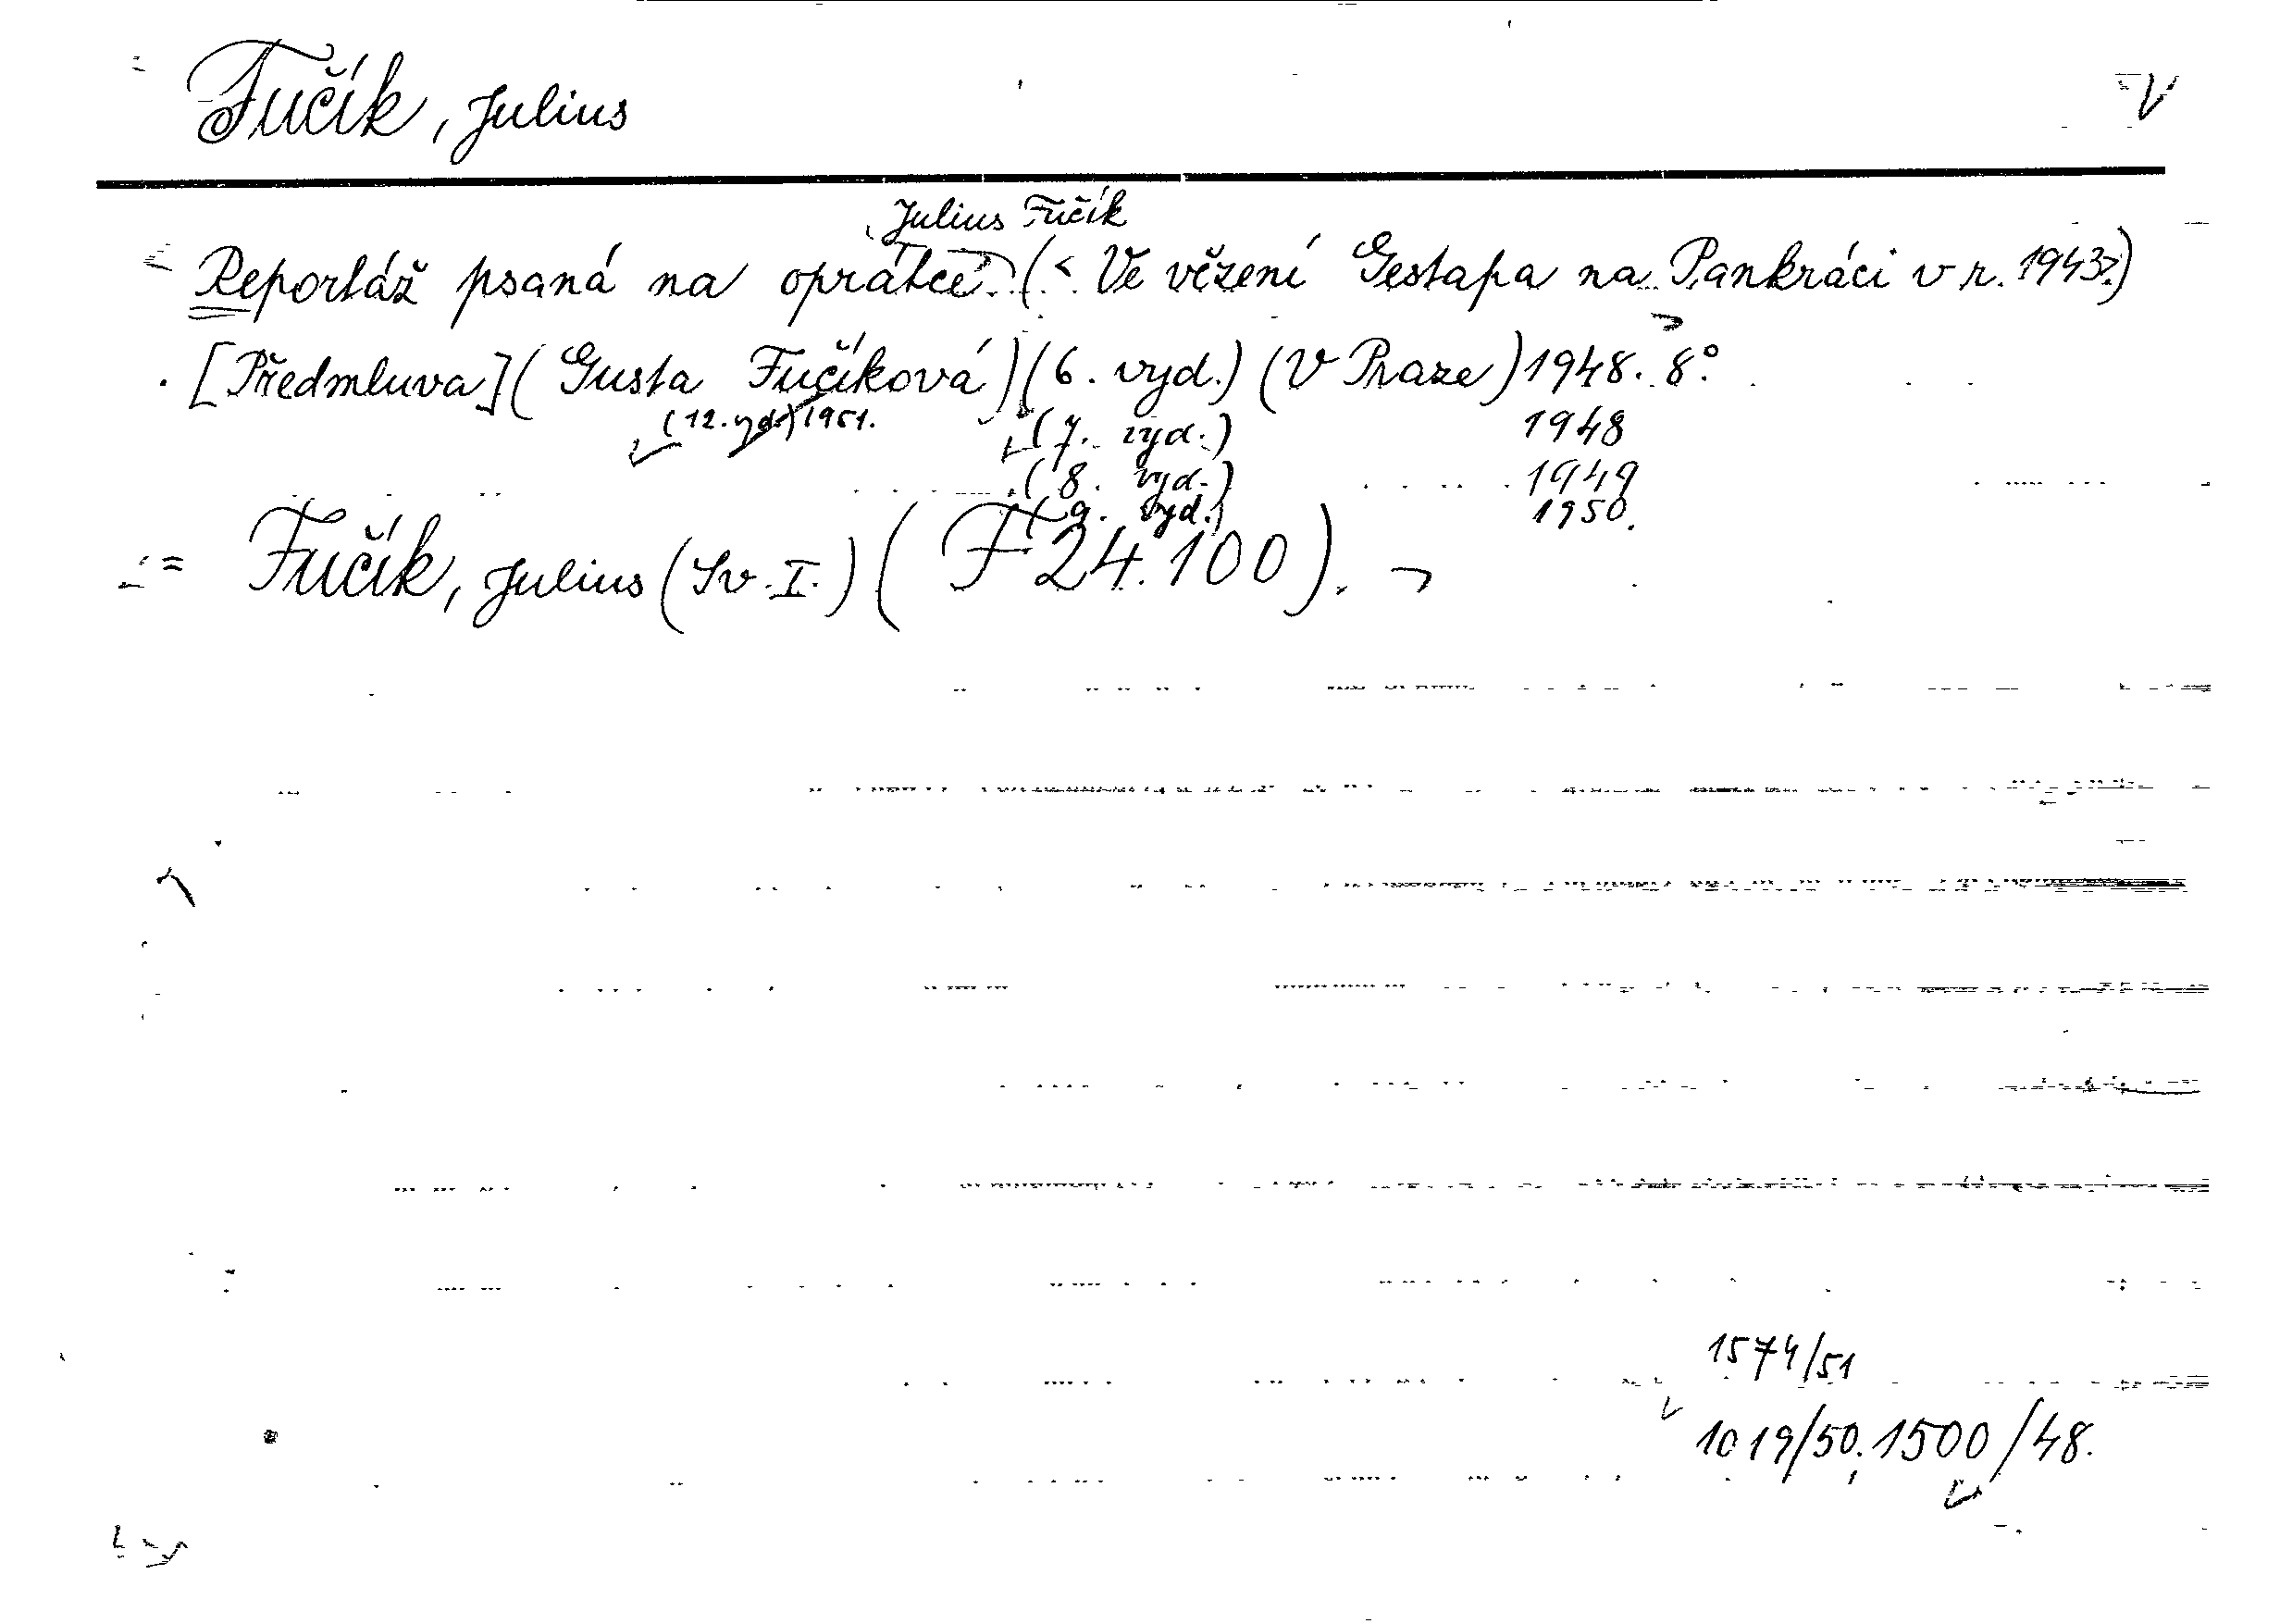 Fučík, Julius V
Julius Fučík
Reportáž psaná na oprátce. (< Ve vězení Gestapa na Pankráci v r. 1943.)
[Předmluva] (Gusta Fučíková) (6. vyd.) (V Praze) 1948. 8°.
(12. vyd.) 1951. (7. vyd.) 1948
(8. vyd.) 1949
(9. vyd.) 1950.
= Fučík, Julius (Sv. I.) (F 24.100).
1574/51
1019/50, 1500/48.